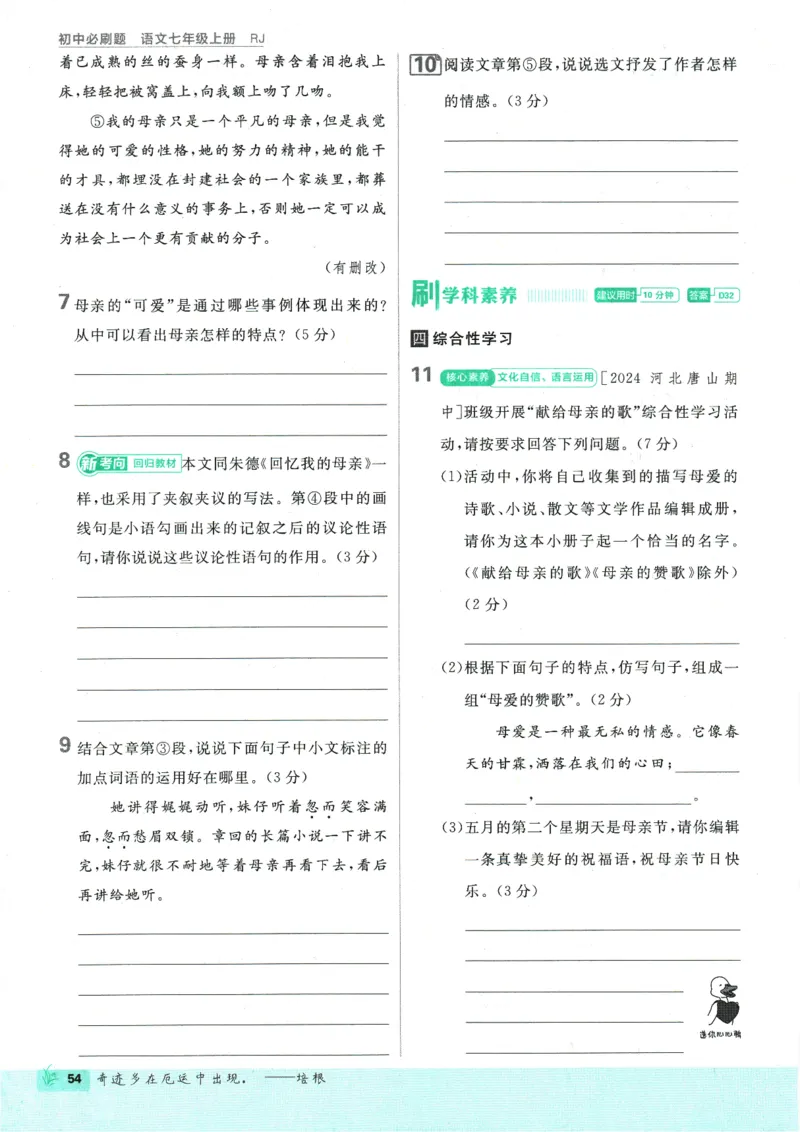 初中必刷题 语文七年级上册 RJ
着已成熟的丝的蚕身一样。母亲含着泪抱我上
床,轻轻把被窝盖上,向我额上吻了几吻。
⑤我的母亲只是一个平凡的母亲,但是我觉
得她的可爱的性格,她的努力的精神,她的能干
的才具,都埋没在封建社会的一个家族里,都葬
送在没有什么意义的事务上,否则她一定可以成
为社会上一个更有贡献的分子。
(有删改)
7 母亲的“可爱”是通过哪些事例体现出来的?
从中可以看出母亲怎样的特点?(5分)
8 新考向 回归教材 本文同朱德《回忆我的母亲》一
样,也采用了夹叙夹议的写法。第④段中的画
线句是小语勾画出来的记叙之后的议论性语
句,请你说说这些议论性语句的作用。(3分)
9 结合文章第③段,说说下面句子中小文标注的
加点词语的运用好在哪里。(3分)
她讲得娓娓动听,妹仔听着忽而笑容满
面,忽而愁眉双锁。章回的长篇小说一下讲不
完,妹仔就很不耐地等着母亲再看下去,看后
再讲给她听。
10 阅读文章第⑤段,说说选文抒发了作者怎样
的情感。(3分)
刷 学科素养 建议用时 10分钟 答案 D32
四 综合性学习
11 核心素养 文化自信、语言运用 [2024 河北唐山期
中]班级开展“献给母亲的歌”综合性学习活
动,请按要求回答下列问题。(7分)
(1)活动中,你将自己收集到的描写母爱的
诗歌、小说、散文等文学作品编辑成册,
请你为这本小册子起一个恰当的名字。
(《献给母亲的歌》《母亲的赞歌》除外)
(2分)
(2)根据下面句子的特点,仿写句子,组成一
组“母爱的赞歌”。(2分)
母爱是一种最无私的情感。它像春
天的甘霖,洒落在我们的心田;
,。
(3)五月的第二个星期天是母亲节,请你编辑
一条真挚美好的祝福语,祝母亲节日快
乐。(3分)
送你心心鸭
54 奇迹多在厄运中出现。 ——培根